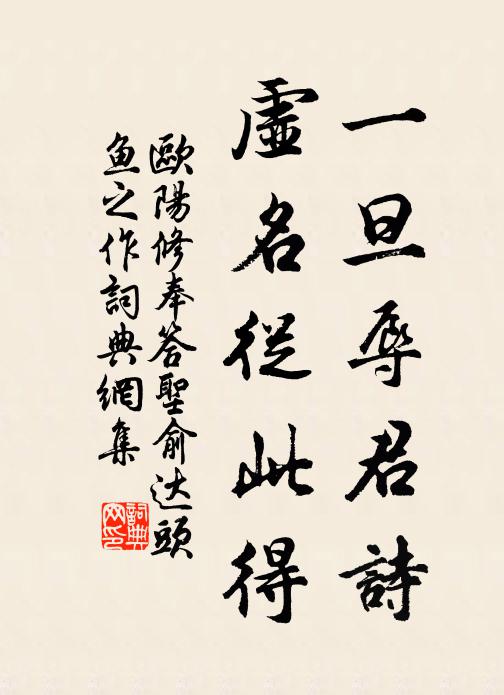 一旦辱君詩
虛名從此得
歐陽修奉答聖俞达頭
鱼之作詞典網集
詞典
网印